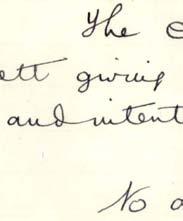 The
ett giving
and intent
No a